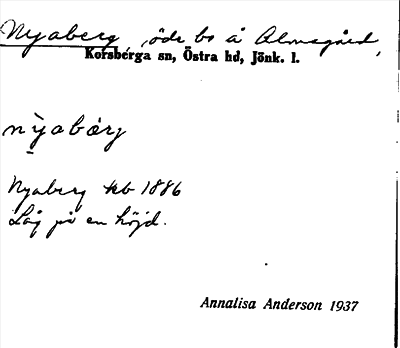 Nyaberg, öde bs å Almsgård,
Korsberga sn, Östra hd, Jönk. l.
nỳabærj
Nyaberg kb 1886
Låg på en höjd.
Annalisa Anderson 1937